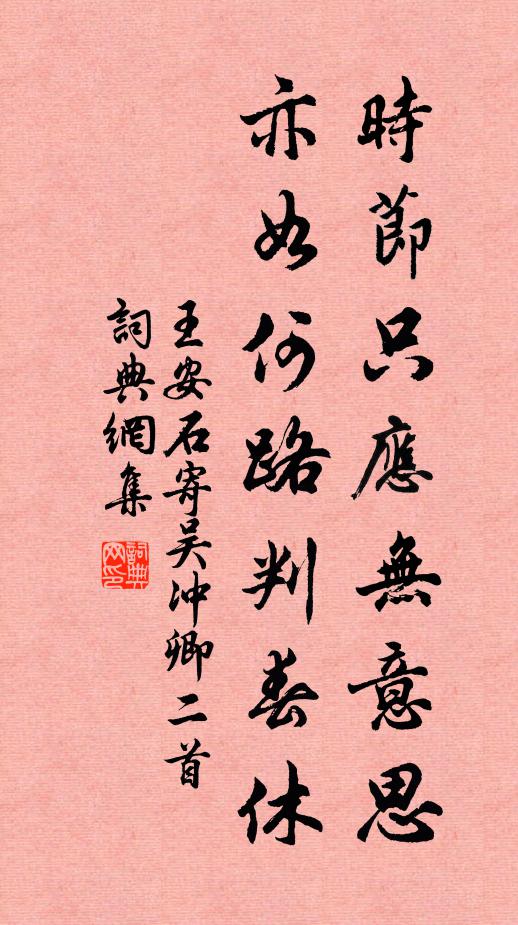 時節只應無意思
亦如何路判春休
王安石寄吴冲卿二首
詞典網集
詞典网印